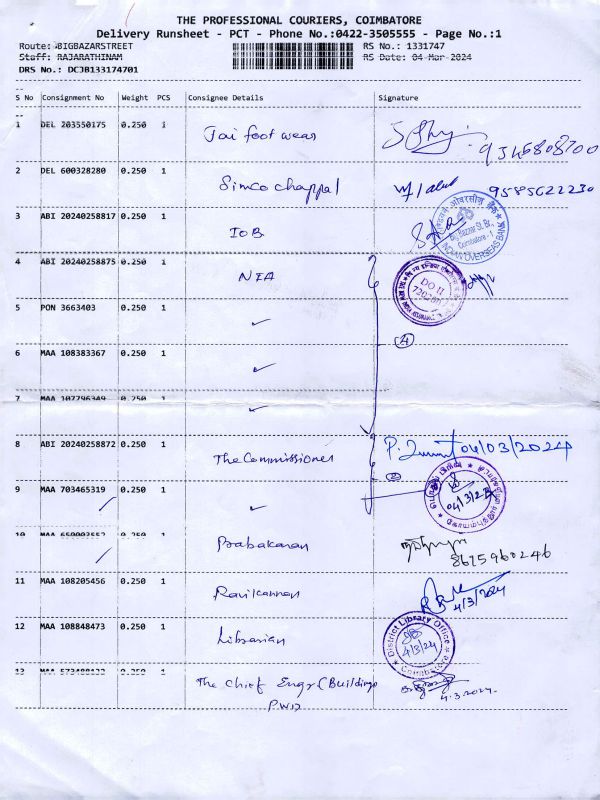 THE PROFESSIONAL COURIERS, COIMBATORE
Delivery Runsheet - PCT - Phone No.:0422-3505555 - Page No.:1
Route: BIGBAZARSTREET RS No.: 1331747
Staff: RAJARATHINAM RS Date: 04-Mar-2024
DRS No.: DCJB133174701
S No Consignment No Weight PCS Consignee Details Signature
1 DEL 203550175 0.250 1 Jai foot wear
2 DEL 600328280 0.250 1 Simco chappal 9585622230
3 ABI 20240258817 0.250 1 IOB
Big Bazaar St. Br.,
Coimbatore - 1
INDIAN OVERSEAS BANK
4 ABI 20240258875 0.250 1 NIA
DO II
5 PON 3663403 0.250 1 ✓
4
6 MAA 108383367 0.250 1 ✓
7 MAA 107796349 0.250 1 ✓
8 ABI 20240258872 0.250 1 The Commissioner 04/03/2024
2
9 MAA 703465319 0.250 1 ✓
04/3/24
10 MAA 0.250 1 Prabakaran
8675960246
11 MAA 108205456 0.250 1 Ravikannan
4/3/2024
12 MAA 108848473 0.250 1 Librarian
District Library Office
4/3/24
Coimbatore
13 MAA 0.250 1 The Chief Engr (Buildings
PWD
4.3.2024